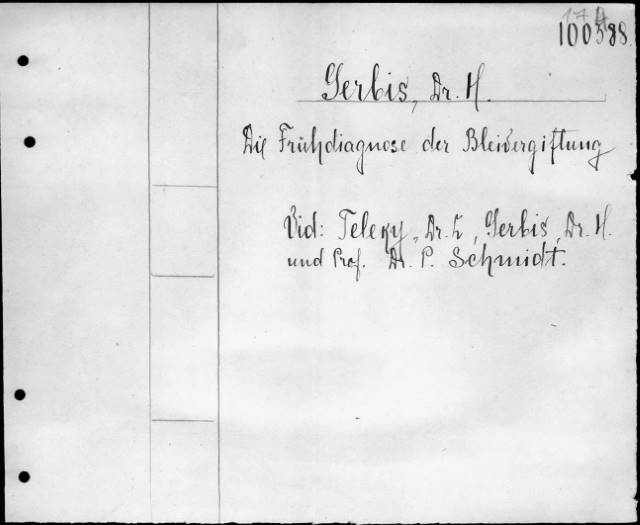 174
100588
Gerbis, Dr. H.
Die Frühdiagnose der Bleivergiftung
Vid: Teleky, Dr. L, Gerbis, Dr. H.
und Prof. Dr. P. Schmidt.